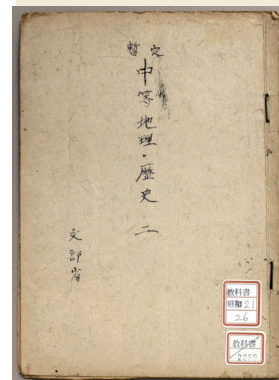 暫定
中等地理・歷史 二
文部省
教科書
昭和21
26
教科書
2257